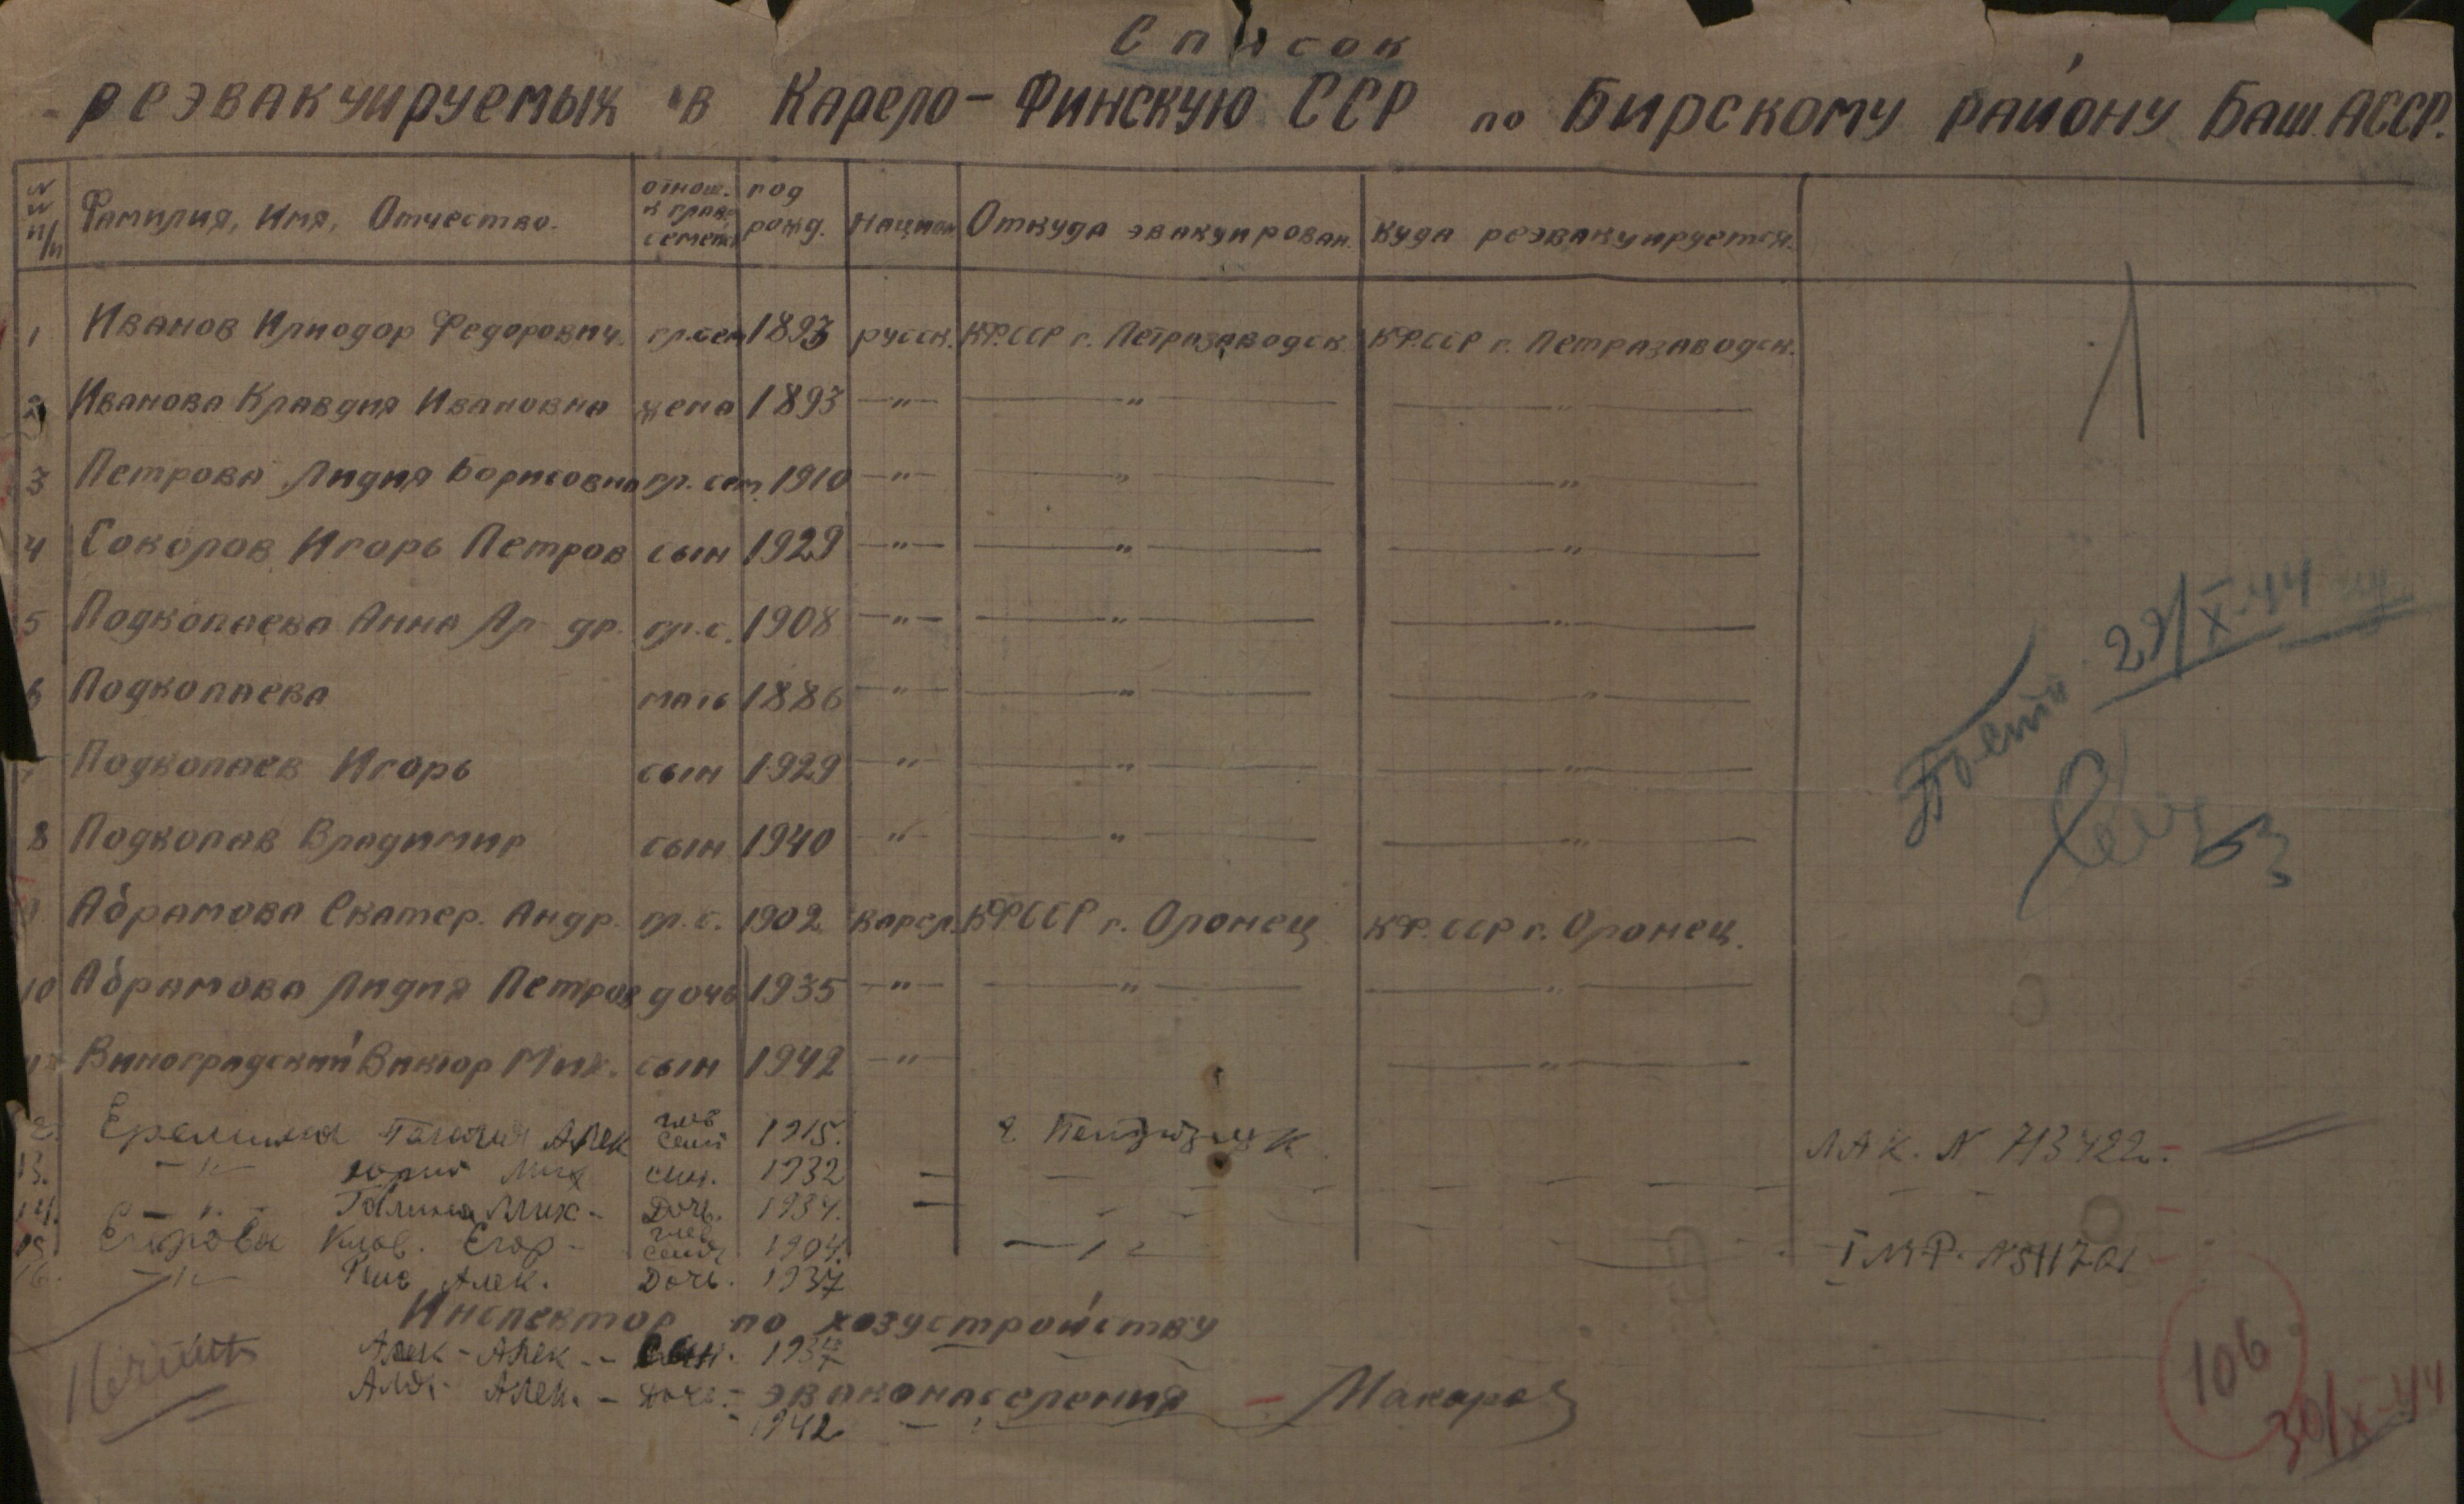 Список
реэвакуируемых в Карело-Финскую ССР по Бирскому району Баш.АССР.
№ № п/п Фамилия, Имя, Отчество. отнош. к глав. семейс год рожд. национ Откуда эвакуирован. куда реэвакуируется.
1 Иванов Илиодор Федорович. гл.сем 1893 русск. КФССР г. Петразаводск. КФССР г. Петразаводск. 1
2 Иванова Клавдия Ивановна жена 1893 —"— —"— —"—
3 Петрова Лидия Борисовна гл. сем. 1910 —"— —"— —"—
4 Соколов Игорь Петров сын 1929 —"— —"— —"—
5 Подкопаева Анна др. гл.с. 1908 —"— —"— —"—
29/X-44
6 Подкопаева мать 1886 —"— —"— —"—
7 Подкопаев Игорь сын 1929 —"— —"— —"—
8 Подкопав Владимир сын 1940 " —"— —"—
9 Абрамова Екатер. Андр. гл. с. 1902 карел. КФССР г. Олонец КФ.ССР г. Олонец.
10 Абрамова Лидия Петров дочь 1935 —"— —"— —"—
11 Виноградский Виктор Мих. сын 1942 —"— —"—
12. Еремина Алек глав семи 1915. г. ЛАК. N 713422.
13. —"— Юрий Мих сын. 1932
14. —"— Галина Мих- Дочь. 1934.
15. Егорова Клав. Егор- глав семи 1904. —"— N 511701
16. —"— Алек. Дочь. 1937
Инспектор по хозустройству
Алек - Алек - - сын.
Алек. - Дочь. - эваконаселения - Макаров
1942
106
30/X-44